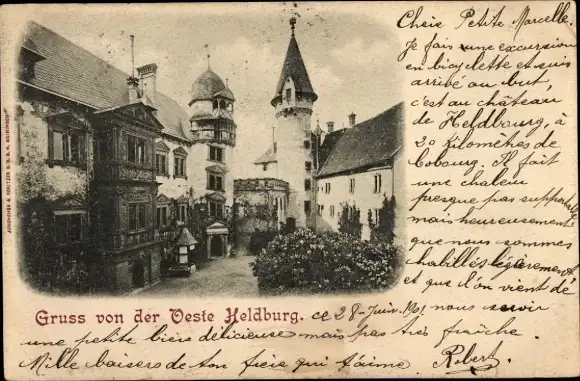 Cheie Petite Marcelle.
Je fais une excursion
en bicyclette et suis
arrivé au but,
c'est au château
de Heldbourg, à
20 kilomètres de
Cobourg. Il fait
une chaleur
presque pas supportable
mais heureusement
que nous sommes
habillés légèrement
et que l'on vient de
Gruss von der Veste Heldburg. ce 28-Juin.1901 nous servir
une petite bière délicieuse mais pas très fraîche.
Mille baisers de ton frère qui t'aime. Robert.